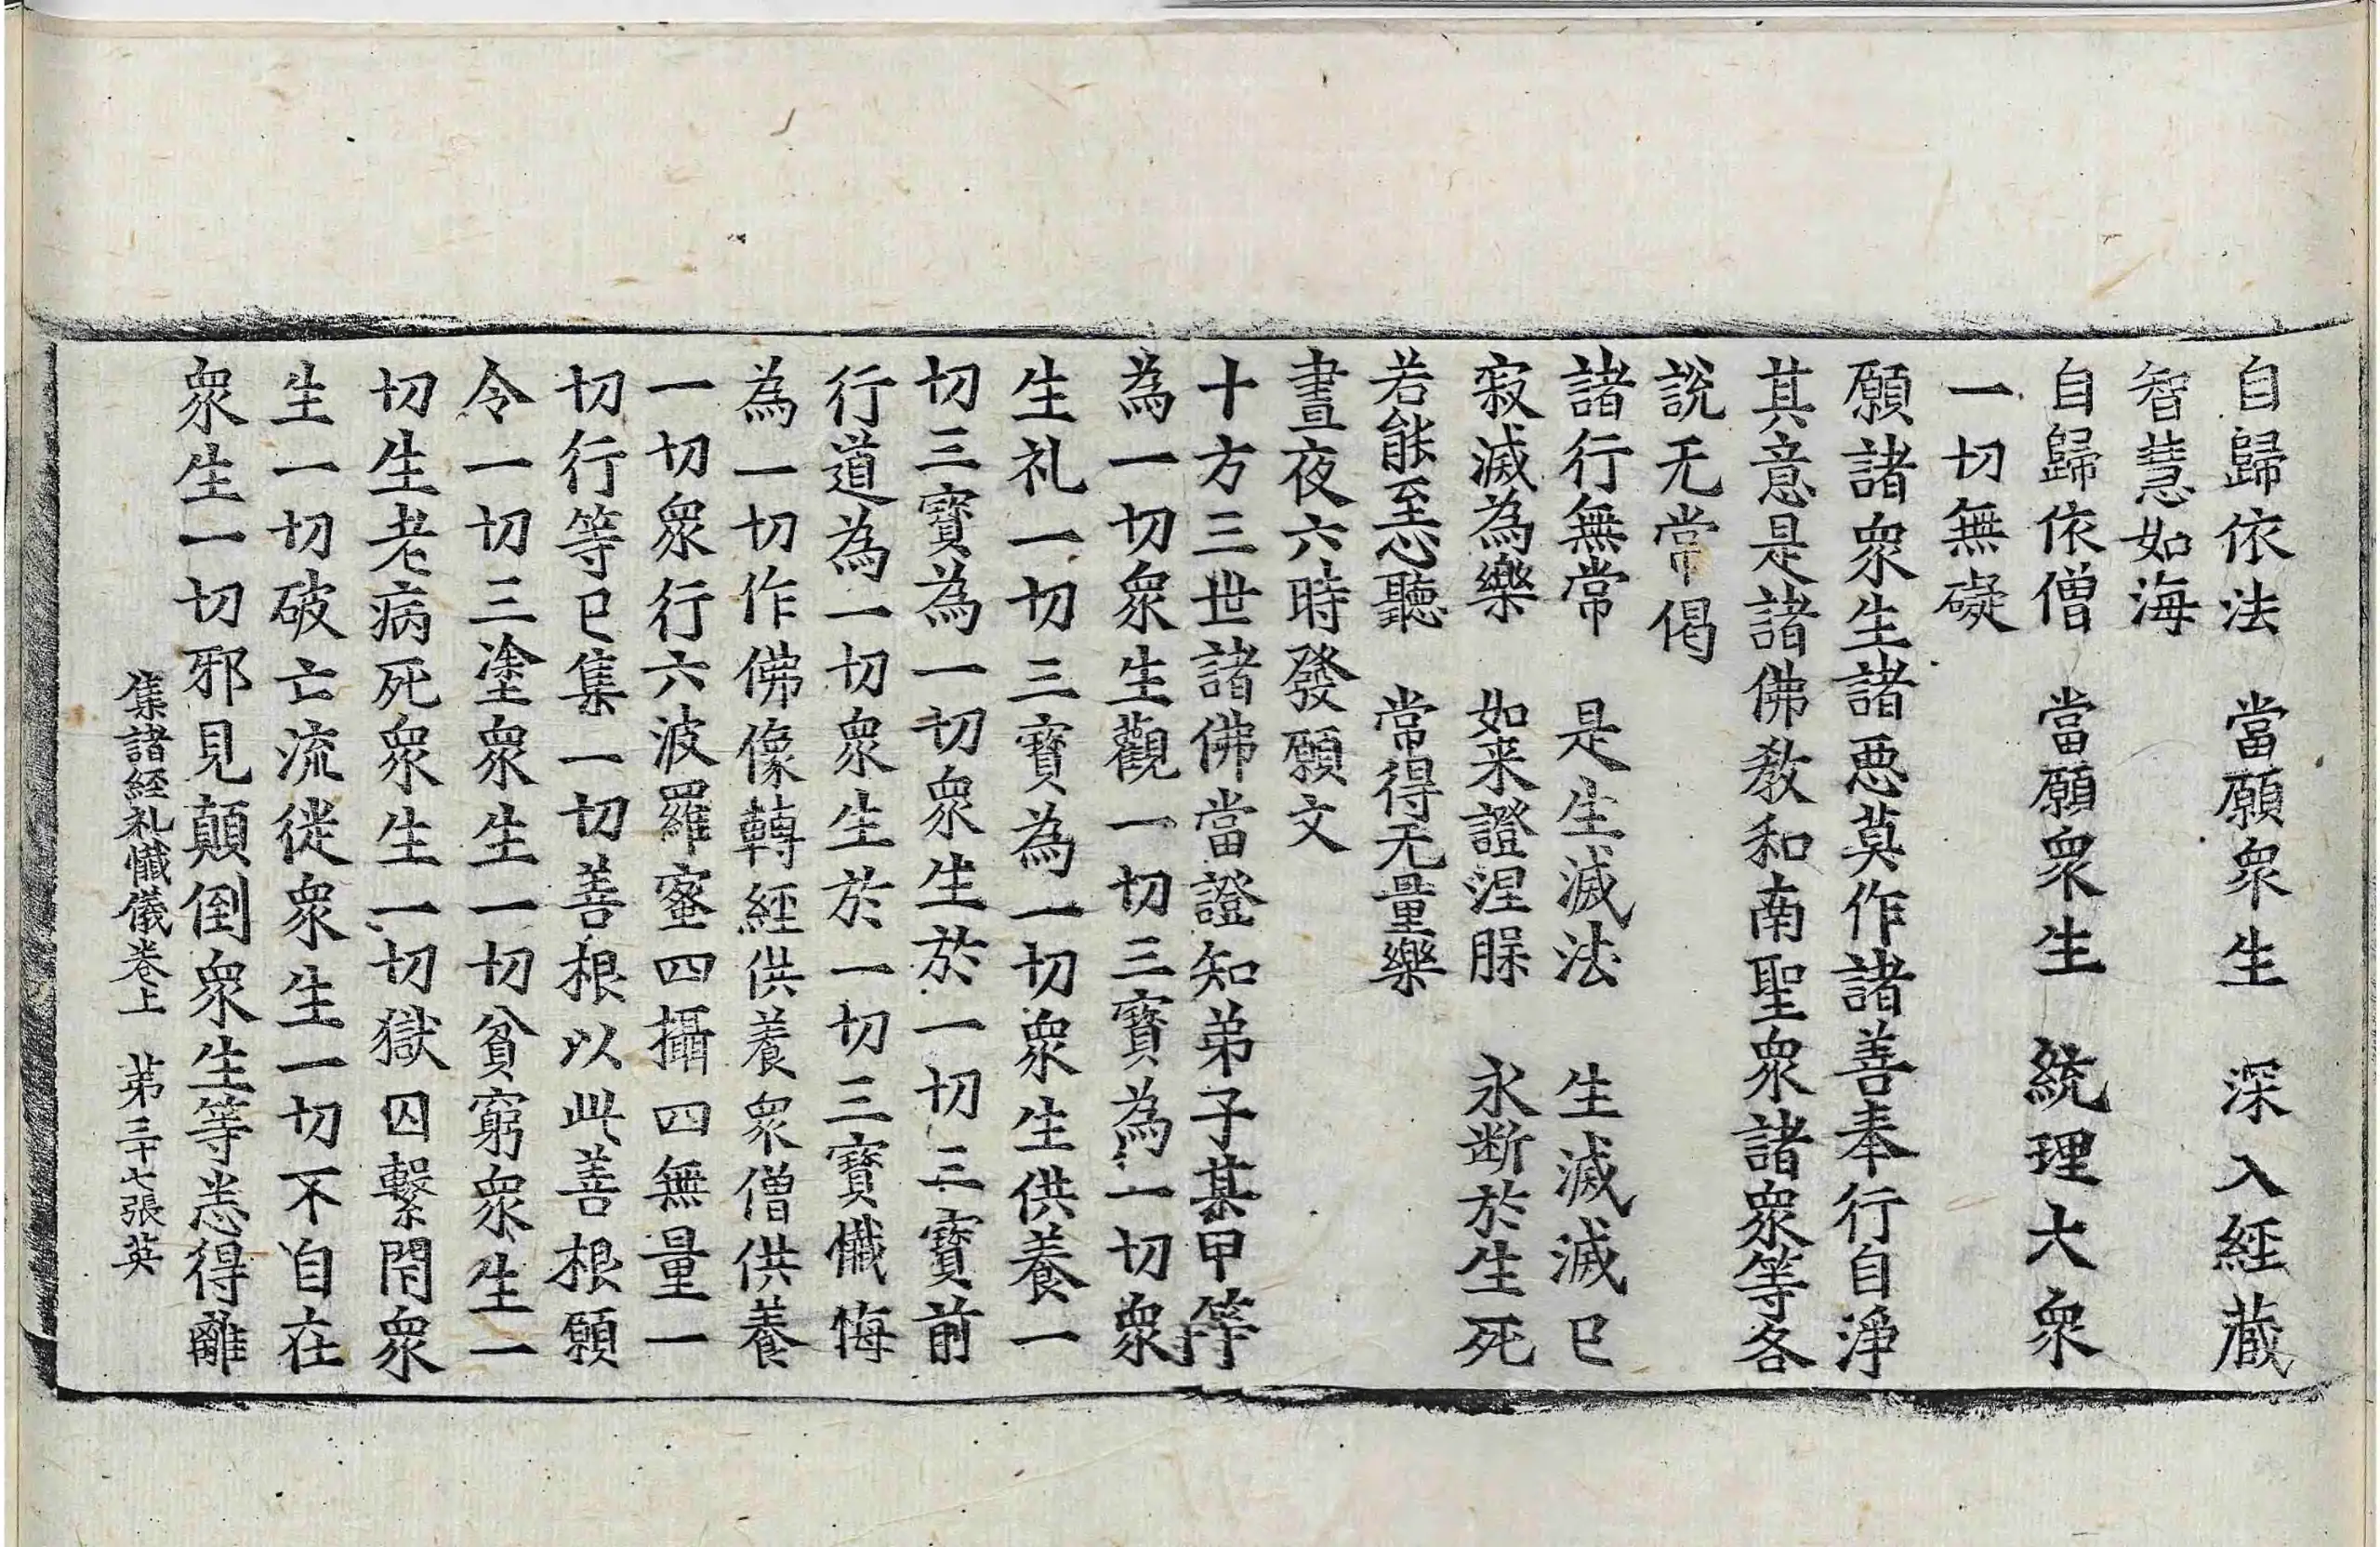 自歸依法　當願衆生　深入經蔵
智慧如海
自歸依僧　當願衆生　統理大衆
一切無礙
願諸衆生諸悪莫作諸善奉行自浄
其意是諸佛教和南聖衆諸衆等各
說无常偈
諸行無常　是生滅法　生滅滅已
寂滅為樂　如来證涅脲　永断於生死
若能至心聽　常得无量樂
晝夜六時發願文
十方三世諸佛當證知弟子某甲等
為一切衆生觀一切三寳為一切衆
生礼一切三寳為一切衆生供養一
切三寳為一切衆生於一切三寳前
行道為一切衆生於一切三寳懺悔
為一切作佛像轉經供養衆僧供養
一切衆行六波羅蜜四攝四無量一
切行等已集一切善根以此善根願
令一切三塗衆生一切貧窮衆生一
切生老病死衆生一切獄囚繫閇衆
生一切破亡流徙衆生一切不自在
衆生一切邪見顛倒衆生等悉得離
集諸經礼懺儀卷上　苐三十七張英